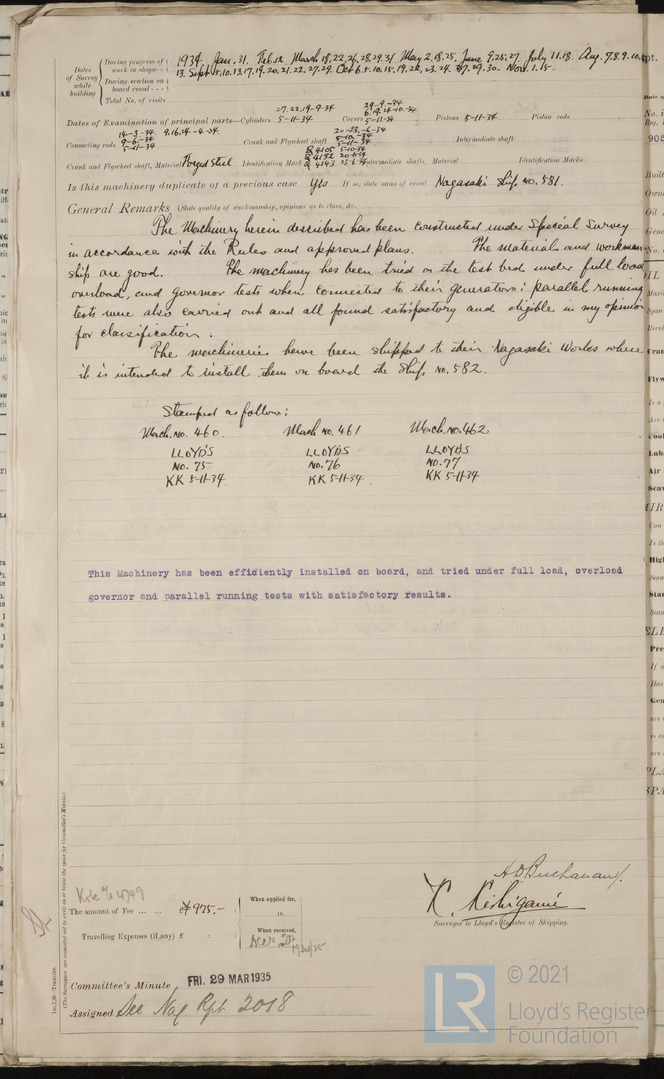 Dates of Survey while building
During progress of work in shops - -
During erection on board vessel - - -
Total No. of visits
1934. Jan. 31. Feb. 12. March 18, 22, 26, 28, 29, 31. May 2. 18. 25. June 9, 25, 27. July 11. 18. Aug. 7. 8. 9. 10.
13. Sept 5, 10, 13, 17, 19, 20, 21, 22, 27, 29. Oct 6. 1. 10, 15, 19, 22, 23, 24. 27. 29. 30. Nov. 1. 15.
Dates of Examination of principal parts—Cylinders 27, 22, 19-9-34 5-11-34 Covers 5-11-34 Pistons 5-11-34 Piston rods
Connecting rods 14-3-34. 9-6-34 5-11-34 9. 16. 24-4-34. Crank and Flywheel shaft Intermediate shaft
Crank and Flywheel shaft, Material Forged Steel Identification Mark R 4105 R 4132 R 4143 Intermediate shafts, Material Identification Marks
Is this machinery duplicate of a previous case Yes If so, state name of vessel Nagasaki Ship No. 581.
General Remarks (State quality of workmanship, opinions as to class, &c.
The Machinery herein described has been constructed under Special Survey
in accordance with the Rules and approved plans. The materials and workman
ship are good. The machinery has been tried on the test bed under full load
overload, and governor tests when connected to their generators; parallel running
tests were also carried out and all found satisfactory and eligible in my opinion
for classification.
The machineries have been shipped to their Nagasaki Works where
it is intended to install them on board the Ship No. 582.
Stamped as follow:
Mach. no. 460. Mach no. 461 Mach. no. 462
LLOYD'S LLOYD'S LLOYD'S
NO. 75 NO. 76 NO. 77
KK 5-11-34. KK 5-11-34. KK 5-11-34
This Machinery has been efficiently installed on board, and tried under full load, overload
governor and parallel running tests with satisfactory results.
(The Surveyors are requested not to write on or below the space for Committee's Minute.)
Kobe
The amount of Fee ... ... ¥ 975.- :
Travelling Expenses (if any) £ :
When applied for,
19
When received,
A D Buchanan
K. Kishigami
Surveyor to Lloyd's Register of Shipping.
Committee's Minute FRI. 29 MAR 1935
Assigned See Nag Rpt 2018
LR
© 2021
Lloyd's Register
Foundation